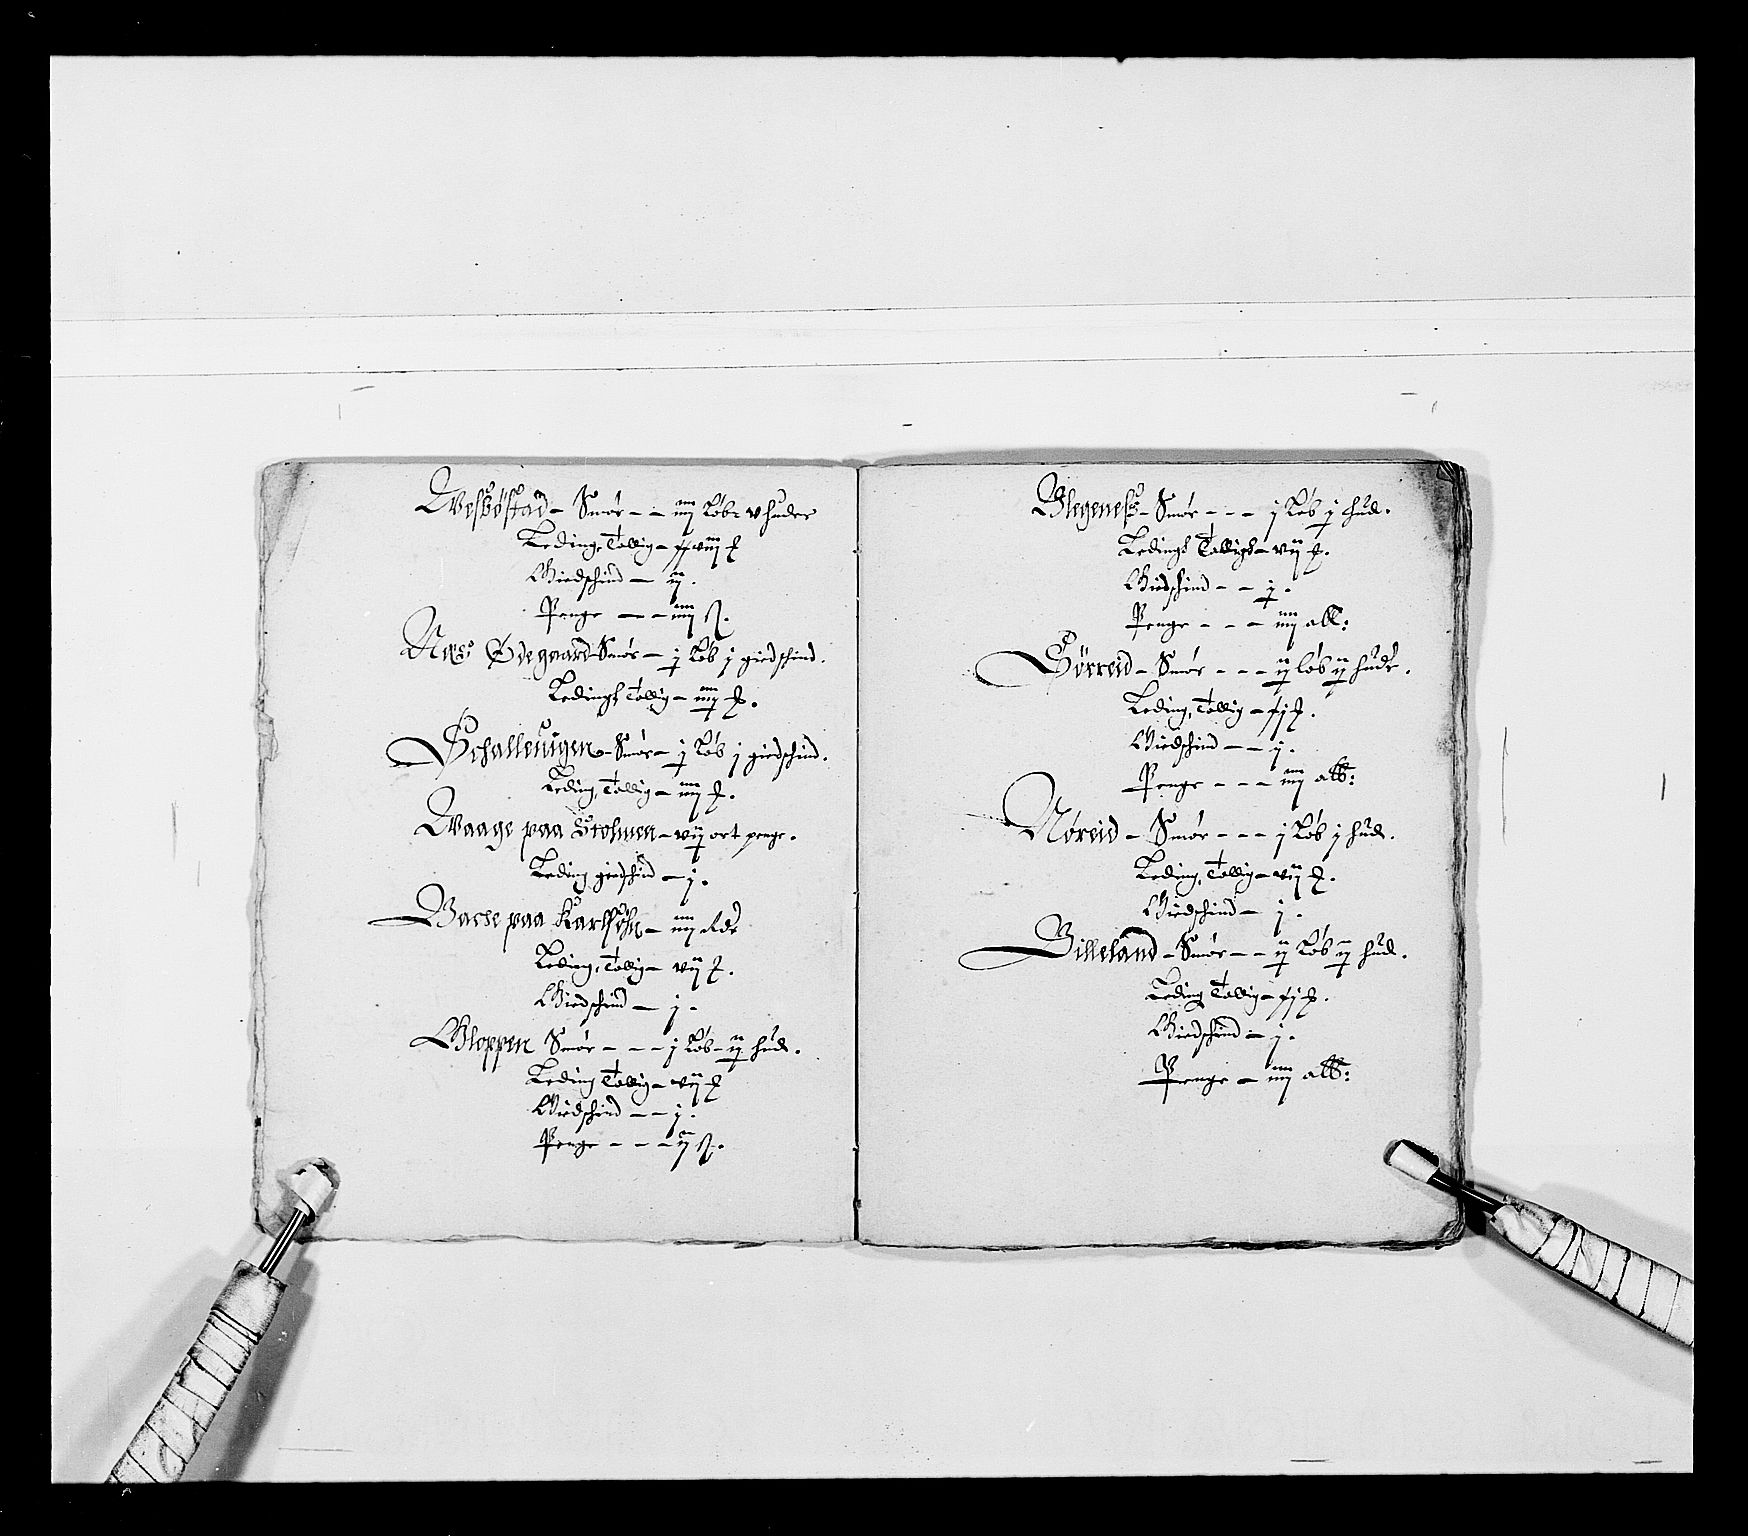 Wesbøstad - Smør - - iiij Løb - v huder
Leding, Tallig -
Giedschind - ij.
Penge - - - iiij ß.
Næs Ødegaard - Smør - j Løb j giedschind.
Ledings Tallig - iiij
Schalleuigen - Smør - j Løb j giedschind.
Leding, Tallig - iiij
Waage paa Stolmen - vij ort penge.
Leding giedschind - j.
Wasse paa Karlsøhn - iiij
Leding, Tallig - vij
Giedschind - j.
Gloppen Smør - - - j Løb - ij hud.
Leding Tallig - vij
Giedschind - - j.
Penge - - - ij ß.
Glegeness - Smør - - - j Løb j hud.
Ledings Talligh - vij
Giedschind - - j.
Penge - - - iiij alb:
Sørreid - Smør - - - ij løb ij huder.
Leding, Tallig -
Giedschind - - j.
Penge - - - iiij alb:
Nøreid - Smør - - - j Løb j hud.
Leding, Tallig - vij
Giedschind - j.
Gilleland - Smør - - ij Løb ij hud.
Leding Tallig -
Giedschind - j.
Penge - iiij alb: